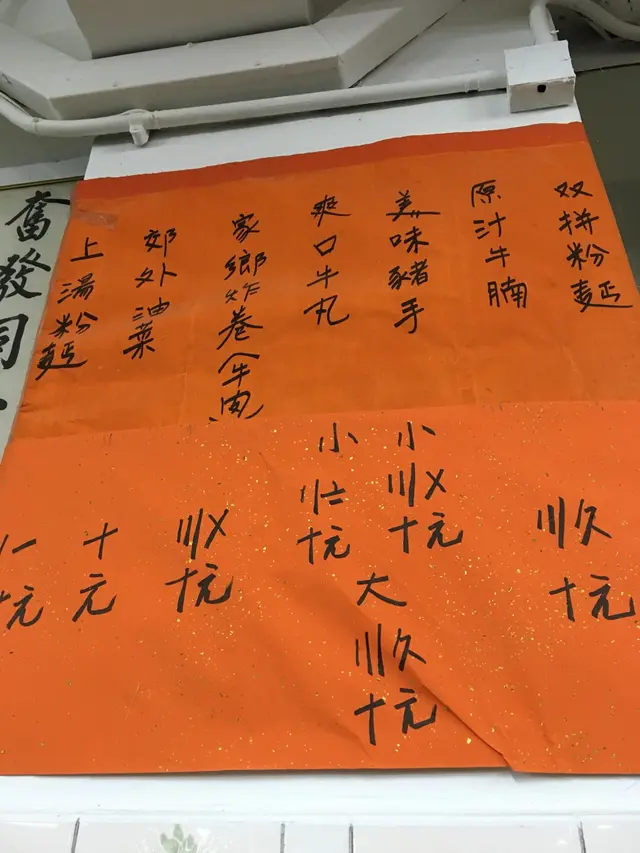 双拼粉麪
原汁牛腩
美味豬手
爽口牛丸
家鄉炸卷(牛肉)
郊外油菜
上湯粉麪
〣〥
十元
小
〣〤
十元
小
〢二
十元
大
〣〥
十元
〣〤
十元
十
元
十元
奮發同